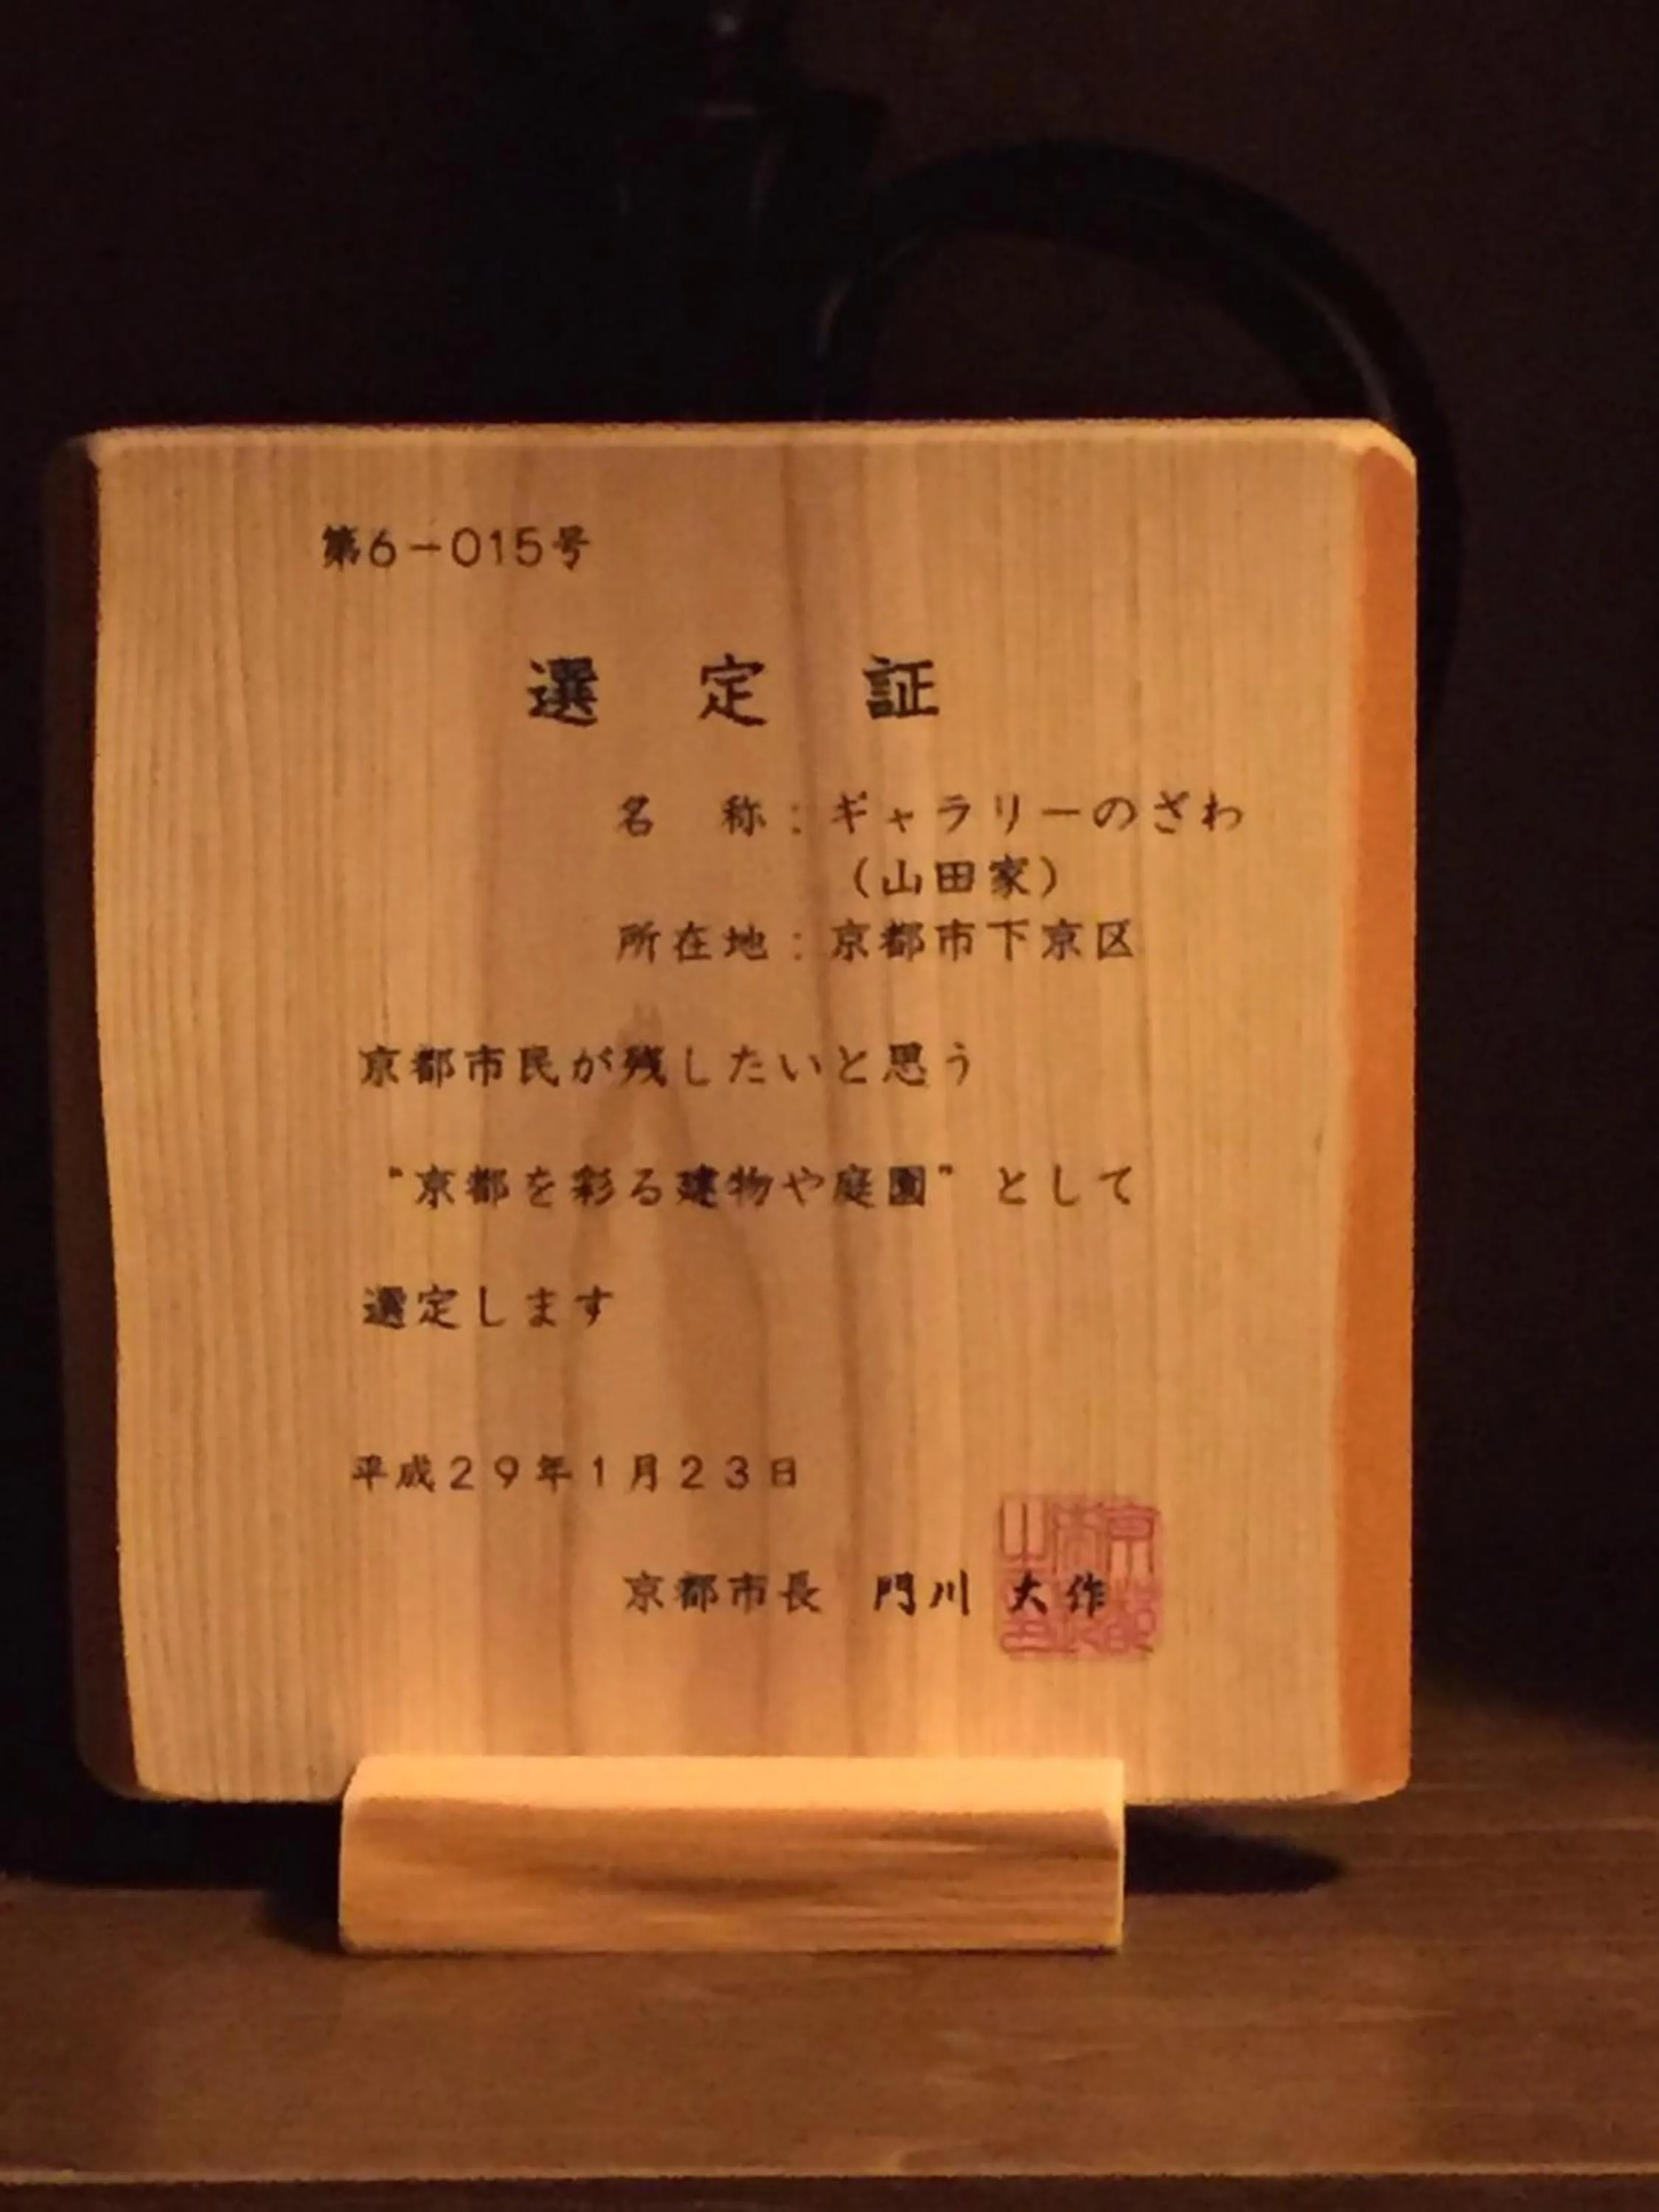 第6-015号
選定証
名 称:ギャラリーのざわ
(山田家)
所在地:京都市下京区
京都市民が残したいと思う
“京都を彩る建物や庭園”として
選定します
平成29年1月23日
京都市長 門川 大作